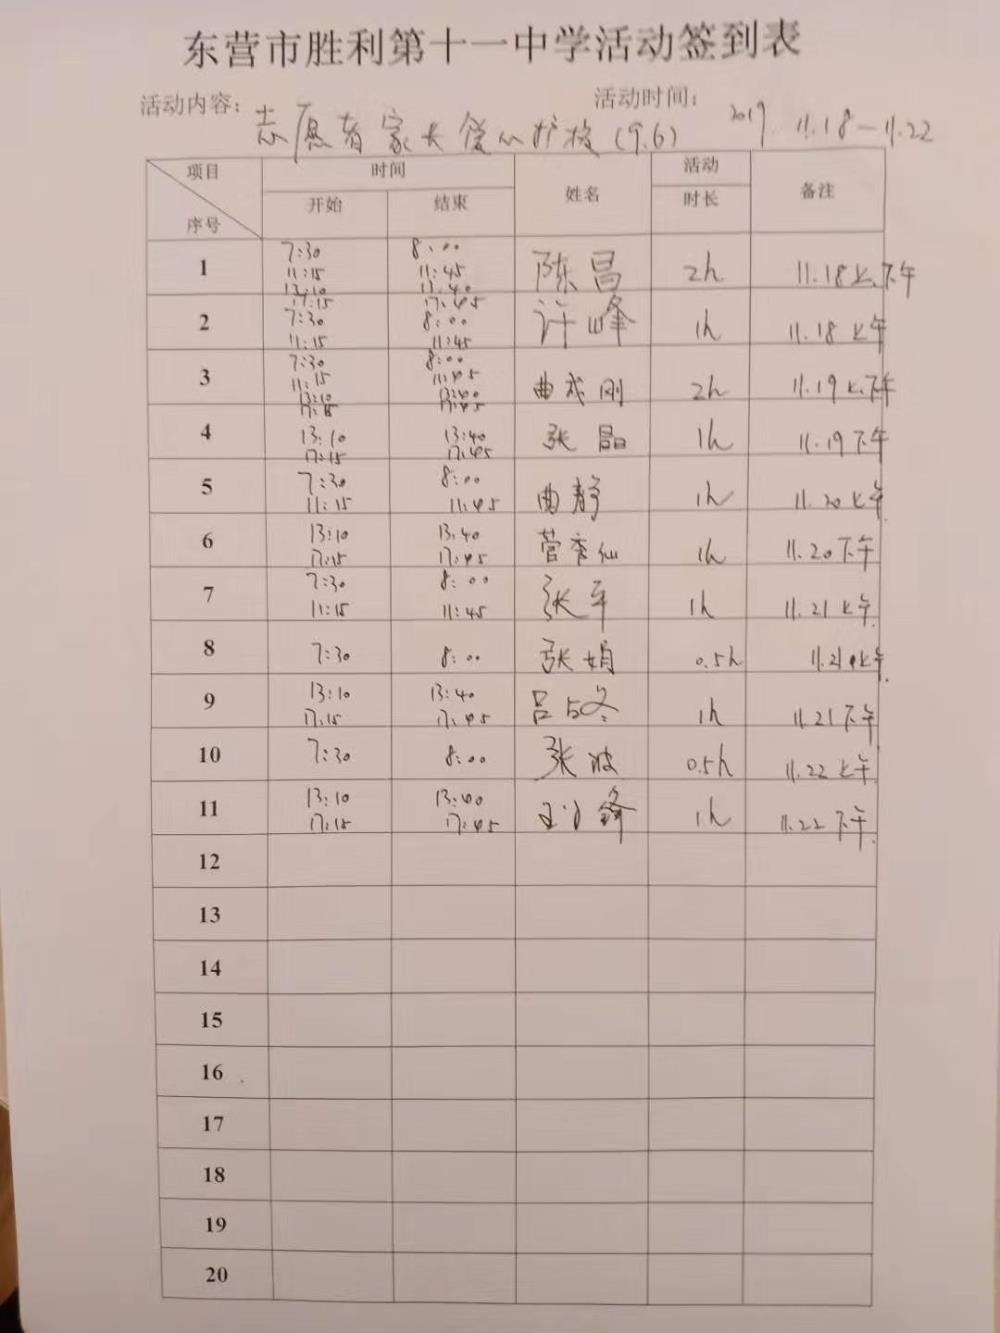 东营市胜利第十一中学活动签到表
活动内容: 志愿者家长爱心护校(9.6) 活动时间: 2019. 11.18-11.22
项目 时间 姓名 活动 备注
序号 开始 结束 时长
1 7:30 8:00 陈昌 2h 11.18上、下午
11:15 11:45
13:10 13:40
17:15 17:45
2 7:30 8:00 许峰 1h 11.18上午
11:15 11:45
3 7:30 8:00 曲成刚 2h 11.19上、下午
11:15 11:45
13:10 13:40
17:15 17:45
4 13:10 13:40 张晶 1h 11.19下午
17:15 17:45
5 7:30 8:00 曲静 1h 11.20上午
11:15 11:45
6 13:10 13:40 菅秀仙 1h 11.20下午
17:15 17:45
7 7:30 8:00 张军 1h 11.21上午.
11:15 11:45
8 7:30 8:00 张娟 0.5h 11.21上午.
9 13:10 13:40 吕占冬 1h 11.21下午
17:15 17:45
10 7:30 8:00 张波 0.5h 11.22上午.
11 13:10 13:40 1h 11.22下午.
17:15 17:45
12
13
14
15
16
17
18
19
20